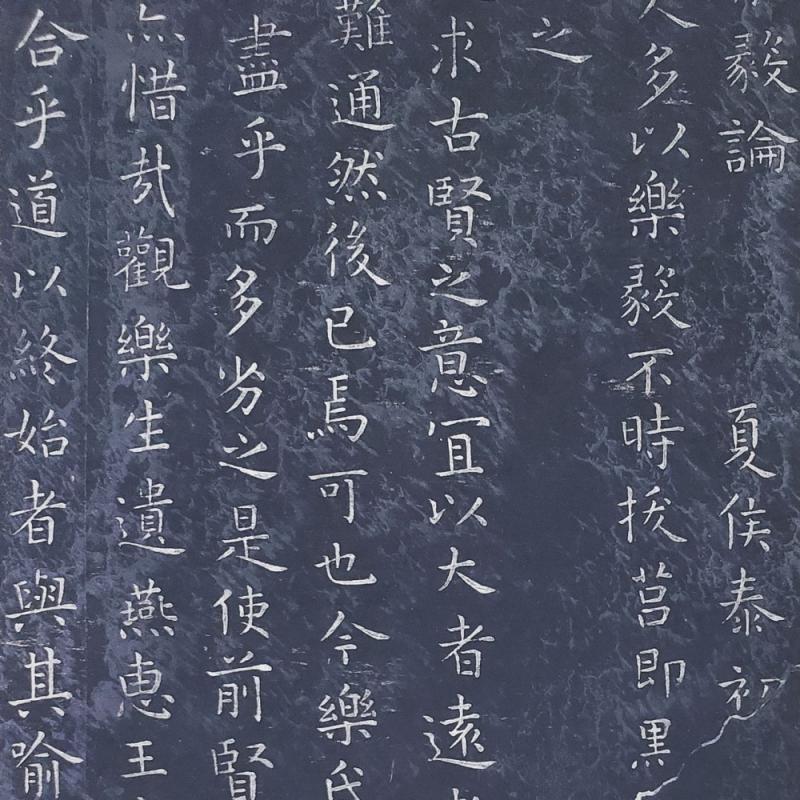 毅論 夏侯泰初
多以樂毅不時拔莒即墨
之
求古賢之意宜以大者遠
難通然後已焉可也今樂氏
盡乎而多劣之是使前賢
惜哉觀樂生遺燕惠王
合乎道以終始者與其喻